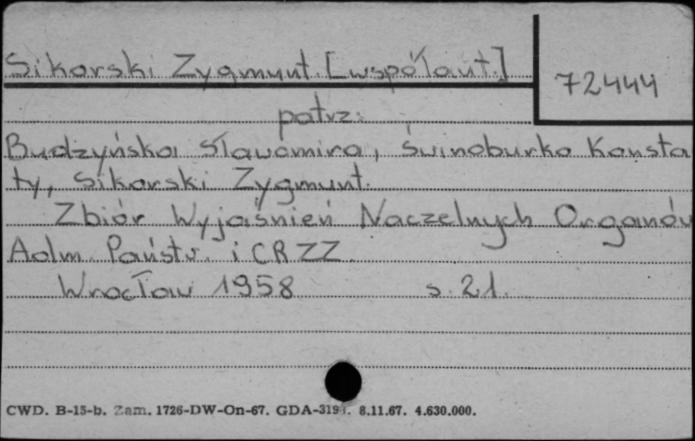 Sikorski Zygmunt. [współaut.]
72444
patrz:
Budzyńska Sławomira, Świnoburko Konsta
ty, Sikorski Zygmunt.
Zbiór Wyjaśnień Naczelnych Organów
Adm. Państw. i CRZZ.
Wrocław 1958 s. 21.
CWD. B-15-b. Zam. 1726-DW-On-67. GDA-319. 8.11.67. 4.630.000.